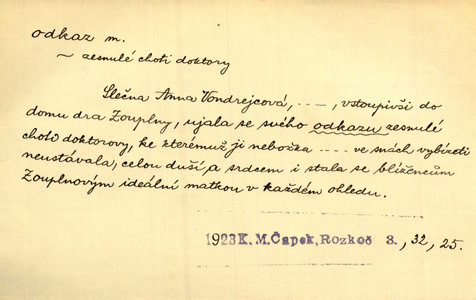 odkaz m.
~ zesnulé choti doktory
Slečna Anna Vondrejcová, ---, vstoupivši do
domu dra Zouplny, ujala se svého odkazu zesnulé
choti doktorovy, ke kterémuž ji nebožka ---- ve snách vybízeti
neustávala, celou duší a srdcem i stala se blížencům
Zouplnovým ideální matkou v každém ohledu.
1923 K. M. Čapek, Rozkoč 3., 32, 25.